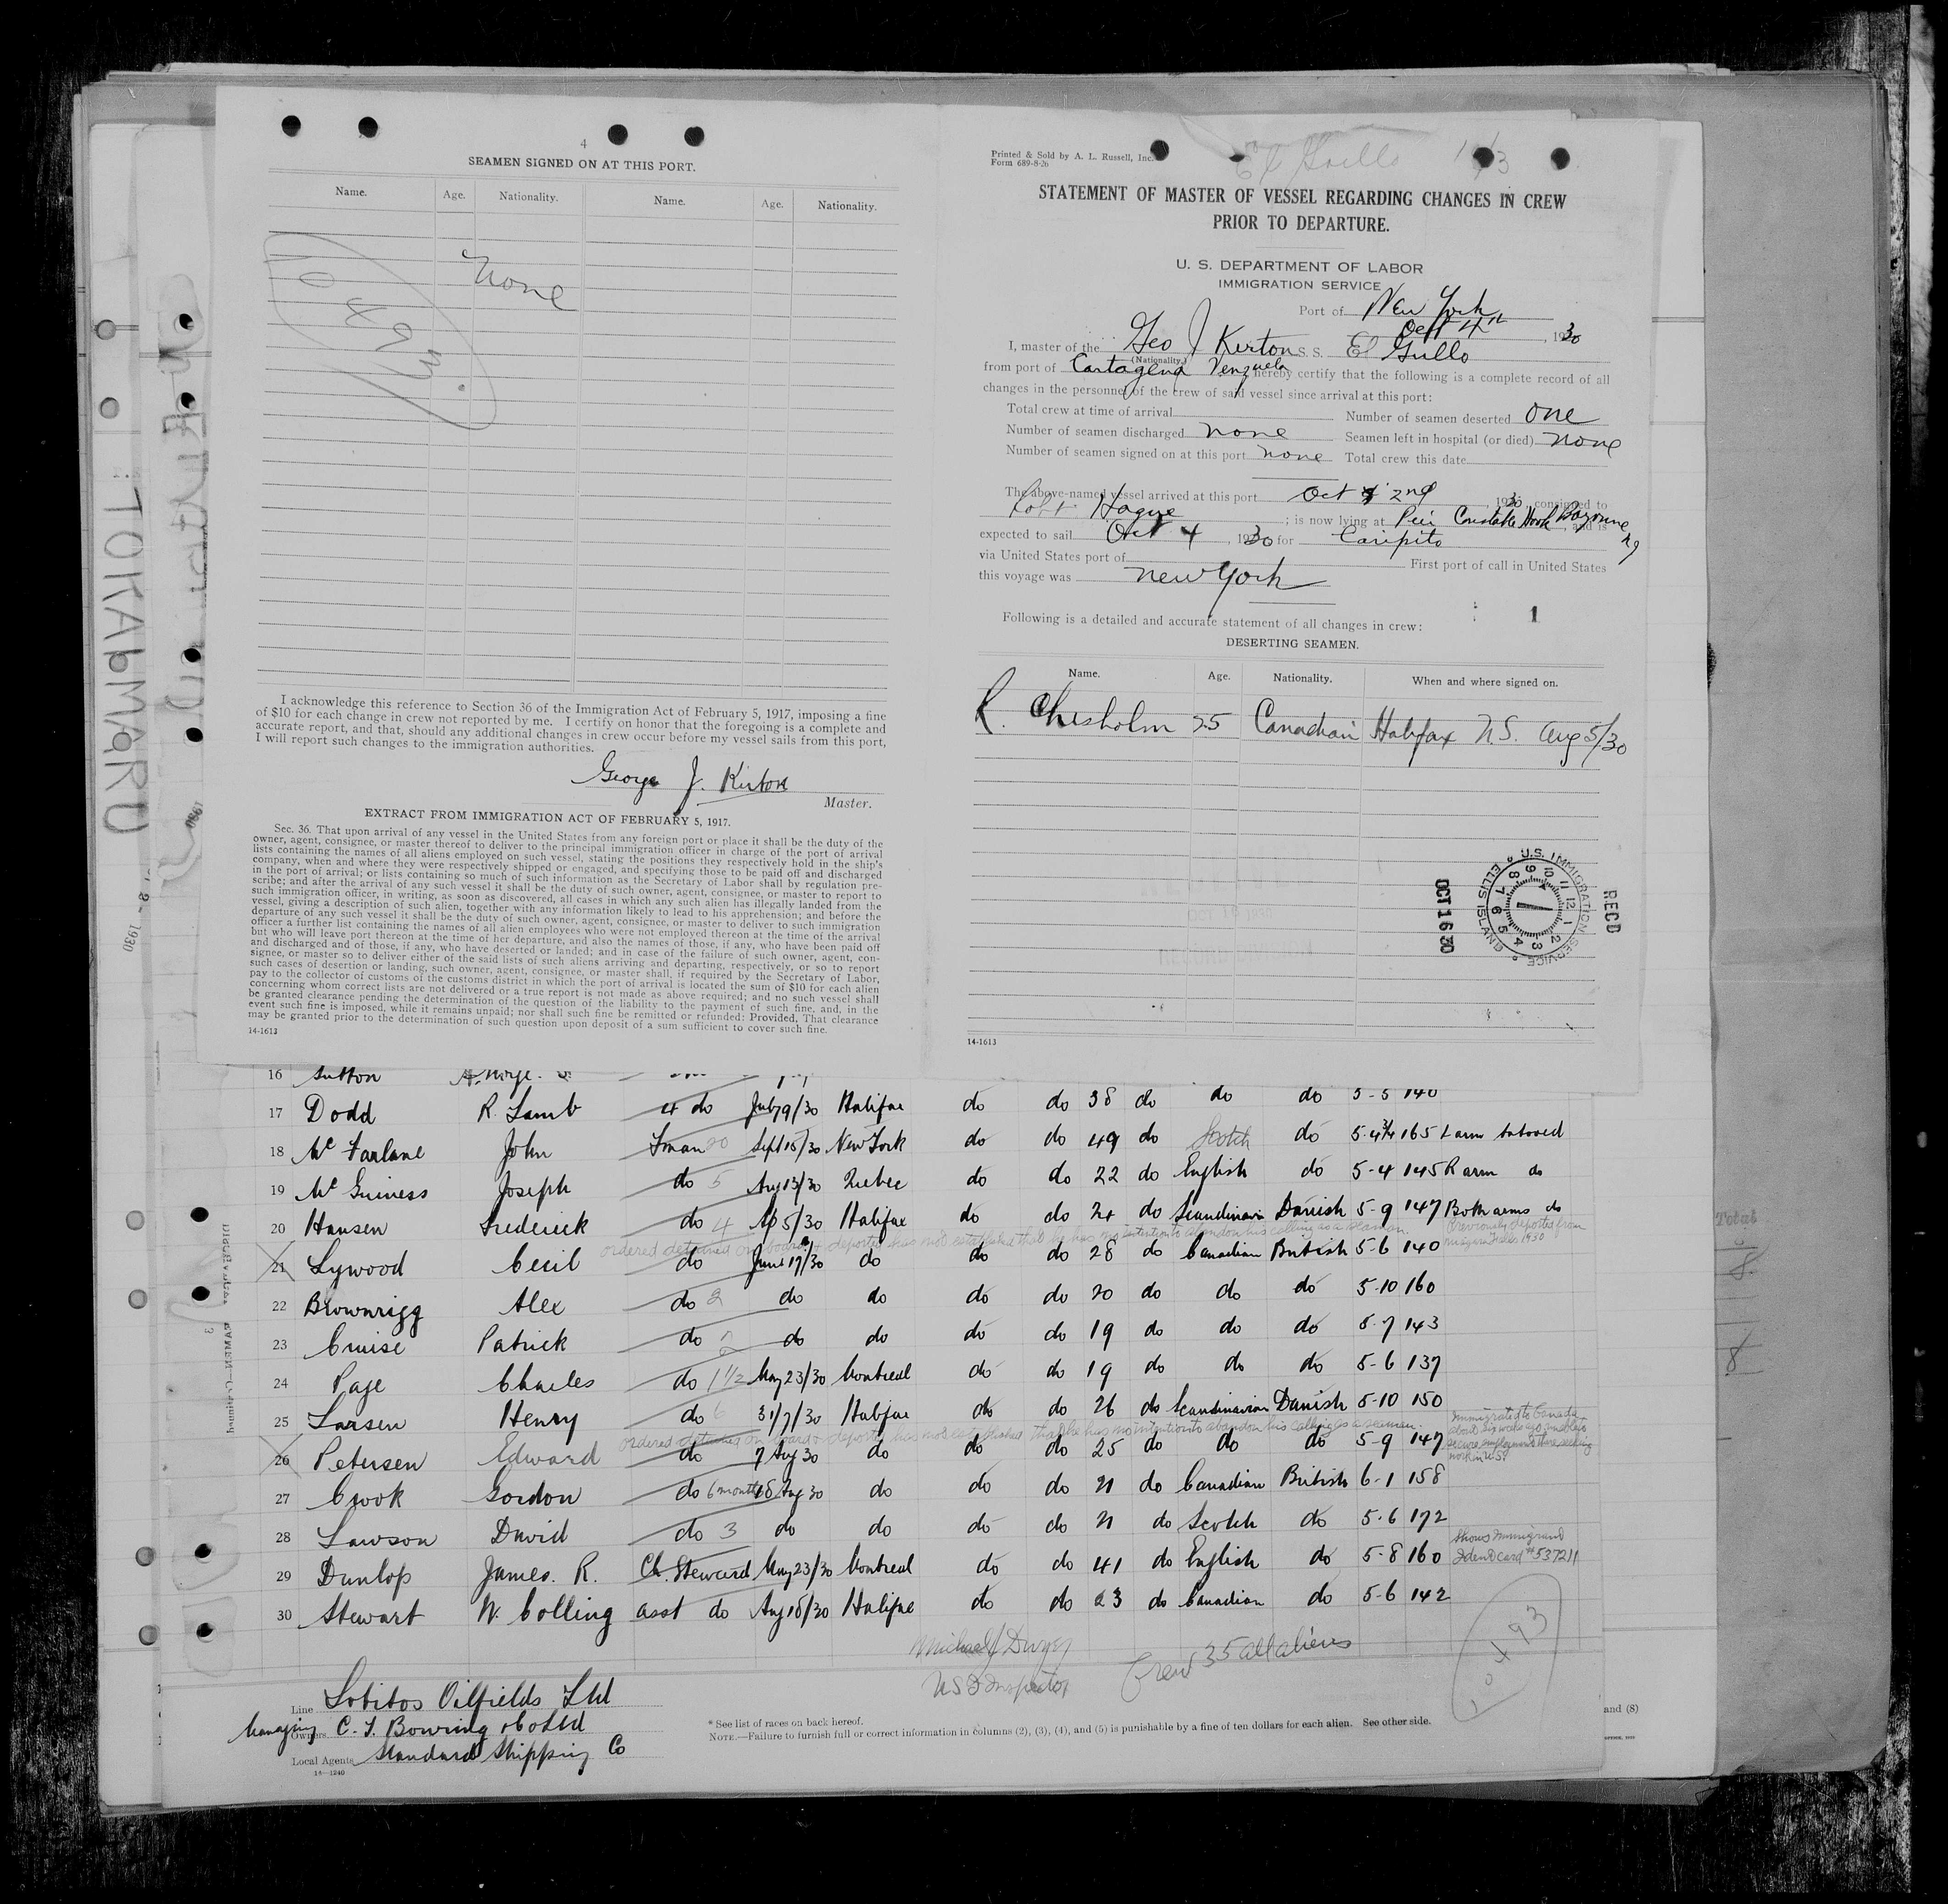 4
SEAMEN SIGNED ON AT THIS PORT.
Name. Age. Nationality. Name. Age. Nationality.
None
10493
I acknowledge this reference to Section 36 of the Immigration Act of February 5, 1917, imposing a fine
of $10 for each change in crew not reported by me. I certify on honor that the foregoing is a complete and
accurate report, and that, should any additional changes in crew occur before my vessel sails from this port,
I will report such changes to the immigration authorities.
George J. Kirton
Master.
EXTRACT FROM IMMIGRATION ACT OF FEBRUARY 5, 1917.
Sec. 36. That upon arrival of any vessel in the United States from any foreign port or place it shall be the duty of the
owner, agent, consignee, or master thereof to deliver to the principal immigration officer in charge of the port of arrival
lists containing the names of all aliens employed on such vessel, stating the positions they respectively hold in the ship's
company, when and where they were respectively shipped or engaged, and specifying those to be paid off and discharged
in the port of arrival; or lists containing so much of such information as the Secretary of Labor shall by regulation pre-
scribe; and after the arrival of any such vessel it shall be the duty of such owner, agent, consignee, or master to report to
such immigration officer, in writing, as soon as discovered, all cases in which any such alien has illegally landed from the
vessel, giving a description of such alien, together with any information likely to lead to his apprehension; and before the
departure of any such vessel it shall be the duty of such owner, agent, consignee, or master to deliver to such immigration
officer a further list containing the names of all alien employees who were not employed thereon at the time of the arrival
but who will leave port thereon at the time of her departure, and also the names of those, if any, who have been paid off
and discharged and of those, if any, who have deserted or landed; and in case of the failure of such owner, agent, con-
signee, or master so to deliver either of the said lists of such aliens arriving and departing, respectively, or so to report
such cases of desertion or landing, such owner, agent, consignee, or master shall, if required by the Secretary of Labor,
pay to the collector of customs of the customs district in which the port of arrival is located the sum of $10 for each alien
concerning whom correct lists are not delivered or a true report is not made as above required; and no such vessel shall
be granted clearance pending the determination of the question of the liability to the payment of such fine, and, in the
event such fine is imposed, while it remains unpaid; nor shall such fine be remitted or refunded: Provided, That clearance
may be granted prior to the determination of such question upon deposit of a sum sufficient to cover such fine.
14-1613
Printed & Sold by A. L. Russell, Inc.
Form 689-8-26
El Grillo
STATEMENT OF MASTER OF VESSEL REGARDING CHANGES IN CREW
PRIOR TO DEPARTURE.
U. S. DEPARTMENT OF LABOR
IMMIGRATION SERVICE
Port of New York
Oct 4th, 1930
I, master of the Geo J Kirton S. S. El Grillo
(Nationality)
from port of Cartagena Venzuela hereby certify that the following is a complete record of all
changes in the personnel of the crew of said vessel since arrival at this port:
Total crew at time of arrival Number of seamen deserted one
Number of seamen discharged none Seamen left in hospital (or died) none
Number of seamen signed on at this port none Total crew this date
The above-named vessel arrived at this port Oct 2nd, 1930, consigned to
Robt Hague; is now lying at Peir Constable Hook Bayonne NJ, and is
expected to sail Oct 4, 1930 for Caripito
via United States port of First port of call in United States
this voyage was New York
1
Following is a detailed and accurate statement of all changes in crew:
DESERTING SEAMEN.
Name. Age. Nationality. When and where signed on.
R. Chisholm 25 Canadian Halifax N.S. Aug 5/30
RECD
U.S. IMMIGRATION SERVICE
ELLIS ISLAND
OCT 16 30
14-1613
TOKAI MARU
16 Sutton
17 Dodd R. Lamb 4 do July 9/30 Halifax do do 38 do do do 5-5 140
18 McFarlane John Fman 20 Sept 15/30 New York do do 49 do Scotch do 5-4¾ 165 L arm tatooed
19 McGuiness Joseph do 5 Aug 13/30 Quebec do do 22 do English do 5-4 145 R arm do
20 Hansen Frederick do 4 Ap 5/30 Halifax do do 24 do Scandinavian Danish 5-9 147 Both arms do
ordered detained on board & deported has not established that he has no intention to abandon his calling as a seaman. Previously deported from
21 Lywood Cecil do June 19/30 do do do 28 do Canadian British 5-6 140
22 Brownrigg Alex do 2 do do do do 20 do do do 5-10 160
23 Cruise Patrick do 2 do do do do 19 do do do 5-7 143
24 Page Charles do 1½ May 23/30 Montreal do do 19 do do do 5-6 137
25 Larsen Henry do 6 31/7/30 Halifax do do 26 do Scandinavian Danish 5-10 150
ordered detained on board & deported has not established that he has no intention to abandon his calling as a seaman. Immigrated to Canada
26 Petersen Edward do 7 Aug 30 do do do 25 do do do 5-9 147
27 Crook Gordon do 6 months 18 Aug 30 do do do 21 do Canadian British 6-1 158
28 Lawson David do 3 do do do do 21 do Scotch do 5-6 172
29 Dunlop James. R. Ch. Steward May 23/30 Montreal do do 41 do English do 5-8 160 Shows immigrand Iden Card # 537211
30 Stewart W. Colling asst do Aug 18/30 Halifax do do 23 do Canadian do 5-6 142
Michael J Dwyer
US Inspector
Crew 35 all aliens
10493
Line Lobitos Oilfields Ltd
Managing Owners C. T. Bowring & Co Ltd
Local Agents Standard Shipping Co
14-1240
* See list of races on back hereof.
NOTE.—Failure to furnish full or correct information in columns (2), (3), (4), and (5) is punishable by a fine of ten dollars for each alien. See other side.
and (8)
Total